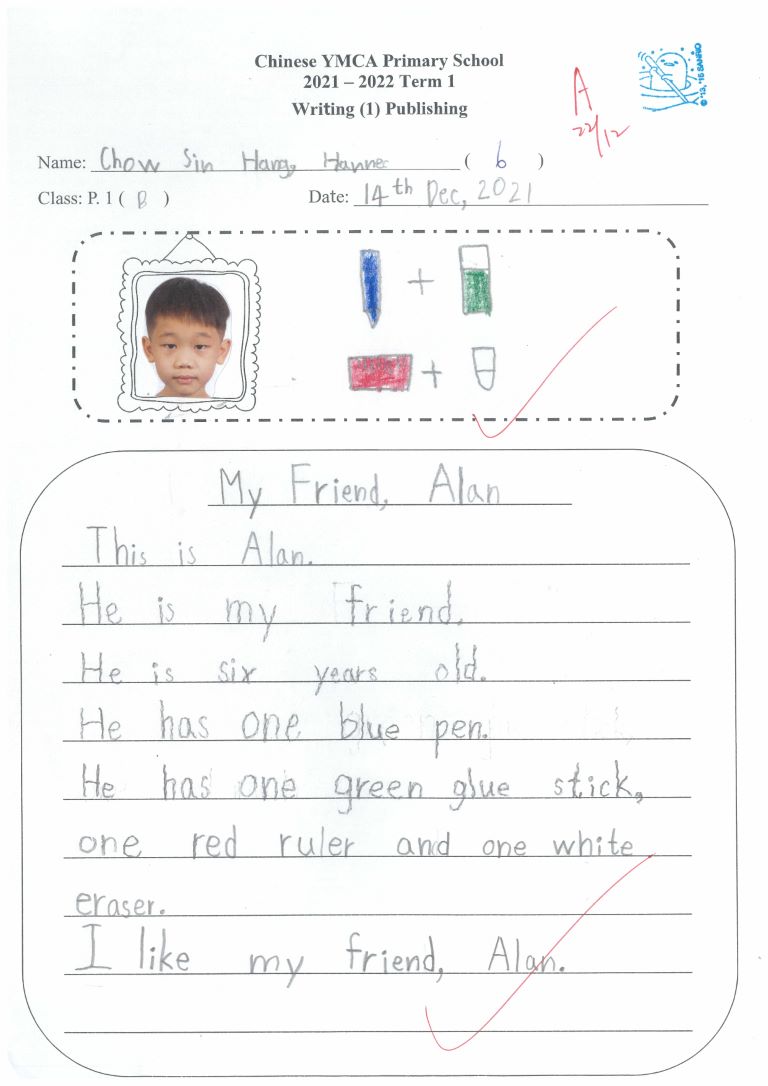 Chinese YMCA Primary School
2021 – 2022 Term 1
Writing (1) Publishing
A
22/12
© '13, '15 SANRIO
Name: Chow Sin Hang, ( 6 )
Class: P. 1 ( B ) Date: 14th Dec, 2021
My Friend, Alan
This is Alan.
He is my friend.
He is six years old.
He has one blue pen.
He has one green glue stick,
one red ruler and one white
eraser.
I like my friend, Alan.